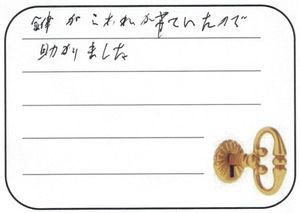 鍵がこわれかけていたので
助かりました。